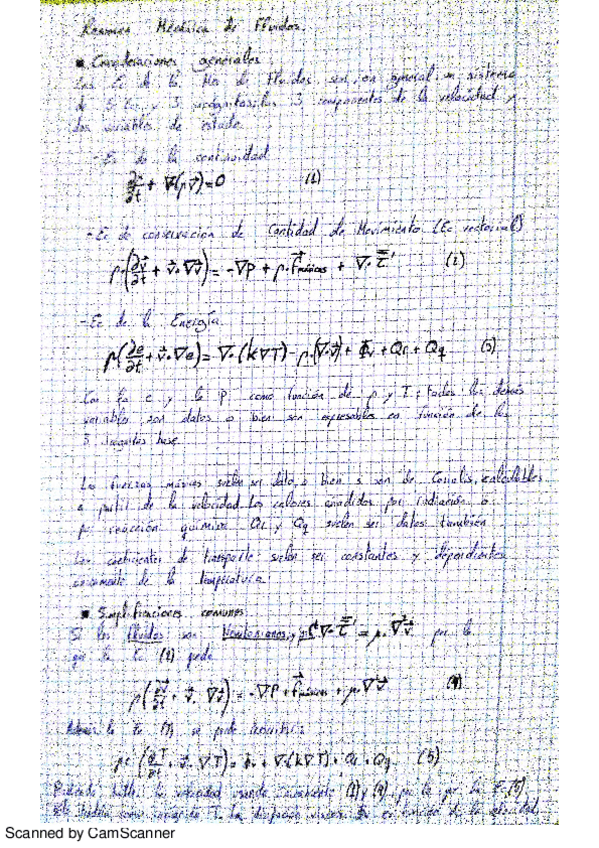 Resumen Mecánica de Fluidos.
▪ Consideraciones generales
Las Ec de la Mec de Fluidos son en general un sistema
de 5 Ec y 5 incognitas: las 3 componentes de la velocidad y
dos variables de estado.
- Ec de la continuidad
∂ρ/∂t + ∇(ρ·v⃗) = 0 (1)
- Ec de conservacion de Cantidad de Movimiento (Ec vectorial)
ρ·(∂v⃗/∂t + v⃗·∇v⃗) = -∇P + ρ·f⃗másicas + ∇·τ' (2)
- Ec de la Energía
ρ(∂e/∂t + v⃗·∇e) = ∇·(k∇T) - ρ·(∇·v⃗) + Φv + Qr + Qq (3)
Con la e y la P como función de ρ y T; todas las demás
variables son datos o bien son expresables en función de las
5 incognitas base.
Las fuerzas másicas suelen ser dato, o bien son de Coriolis, calculables
a partir de la velocidad. Los calores añadidos por radiación o
por reacción química Qr y Qq suelen ser datos también
Los coeficientes de transporte suelen ser constantes y dependientes
unicamente de la temperatura.
▪ Simplificaciones comunes
Si los fluidos son Newtonianos, ∇·τ' = μ·∇v⃗ por lo
que la Ec (2) queda
ρ(∂v⃗/∂t + v⃗·∇v⃗) = -∇P + f⃗másicas + μ·∇v⃗ (4)
la Ec (3) se puede
ρc(∂T/∂t + v⃗·∇T) = + ∇·(k∇T) + Qr + Qq (5)
la velocidad usando unicamente (1) y (4), por lo que la Ec (5)
como incognita T, la
Scanned by CamScanner